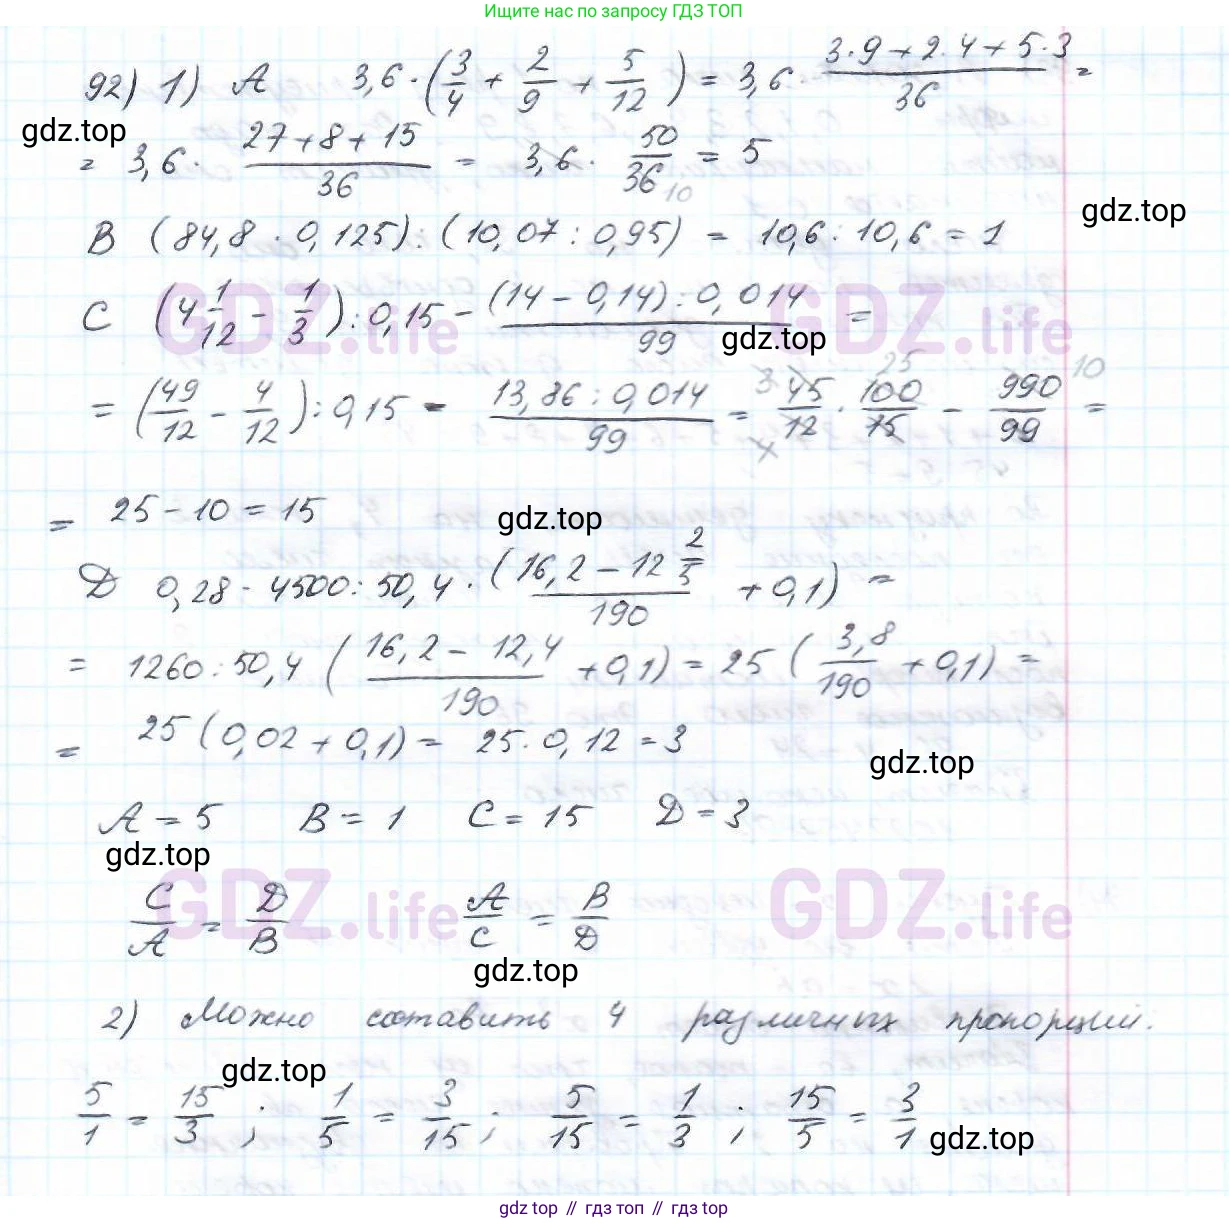 Ищите нас по запросу ГДЗ ТОП
92) 1) A 3,6 · (3/4 + 2/9 + 5/12) = 3,6 · (3·9+2·4+5·3)/36 =
gdz.top
= 3,6 · (27+8+15)/36 = 3,6 · 50/36 = 5
10
gdz.top
B (84,8 · 0,125) : (10,07 : 0,95) = 10,6 : 10,6 = 1
C (4 1/12 - 1/3) : 0,15 - ((14 - 0,14) : 0,014)/99 =
GDZ.life
gdz.top
GDZ.life
= (49/12 - 4/12) : 0,15 - (13,86 : 0,014)/99 = 3 45/12 4 · 100 25/15 - 990/99 10 =
= 25 - 10 = 15
gdz.top
D 0,28 · 4500 : 50,4 · ((16,2 - 12 2/5)/190 + 0,1) =
= 1260 : 50,4 ((16,2 - 12,4)/190 + 0,1) = 25 (3,8/190 + 0,1) =
= 25 (0,02 + 0,1) = 25 · 0,12 = 3
gdz.top
A = 5 B = 1 C = 15 D = 3
gdz.top
C/A = D/B A/C = B/D
GDZ.life
GDZ.life
gdz.top
2) Можно составить 4 различных пропорций.
gdz.top
5/1 = 15/3 ; 1/5 = 3/15 ; 5/15 = 1/3 ; 15/5 = 3/1
gdz.top
gdz top // гдз топ // гдз top